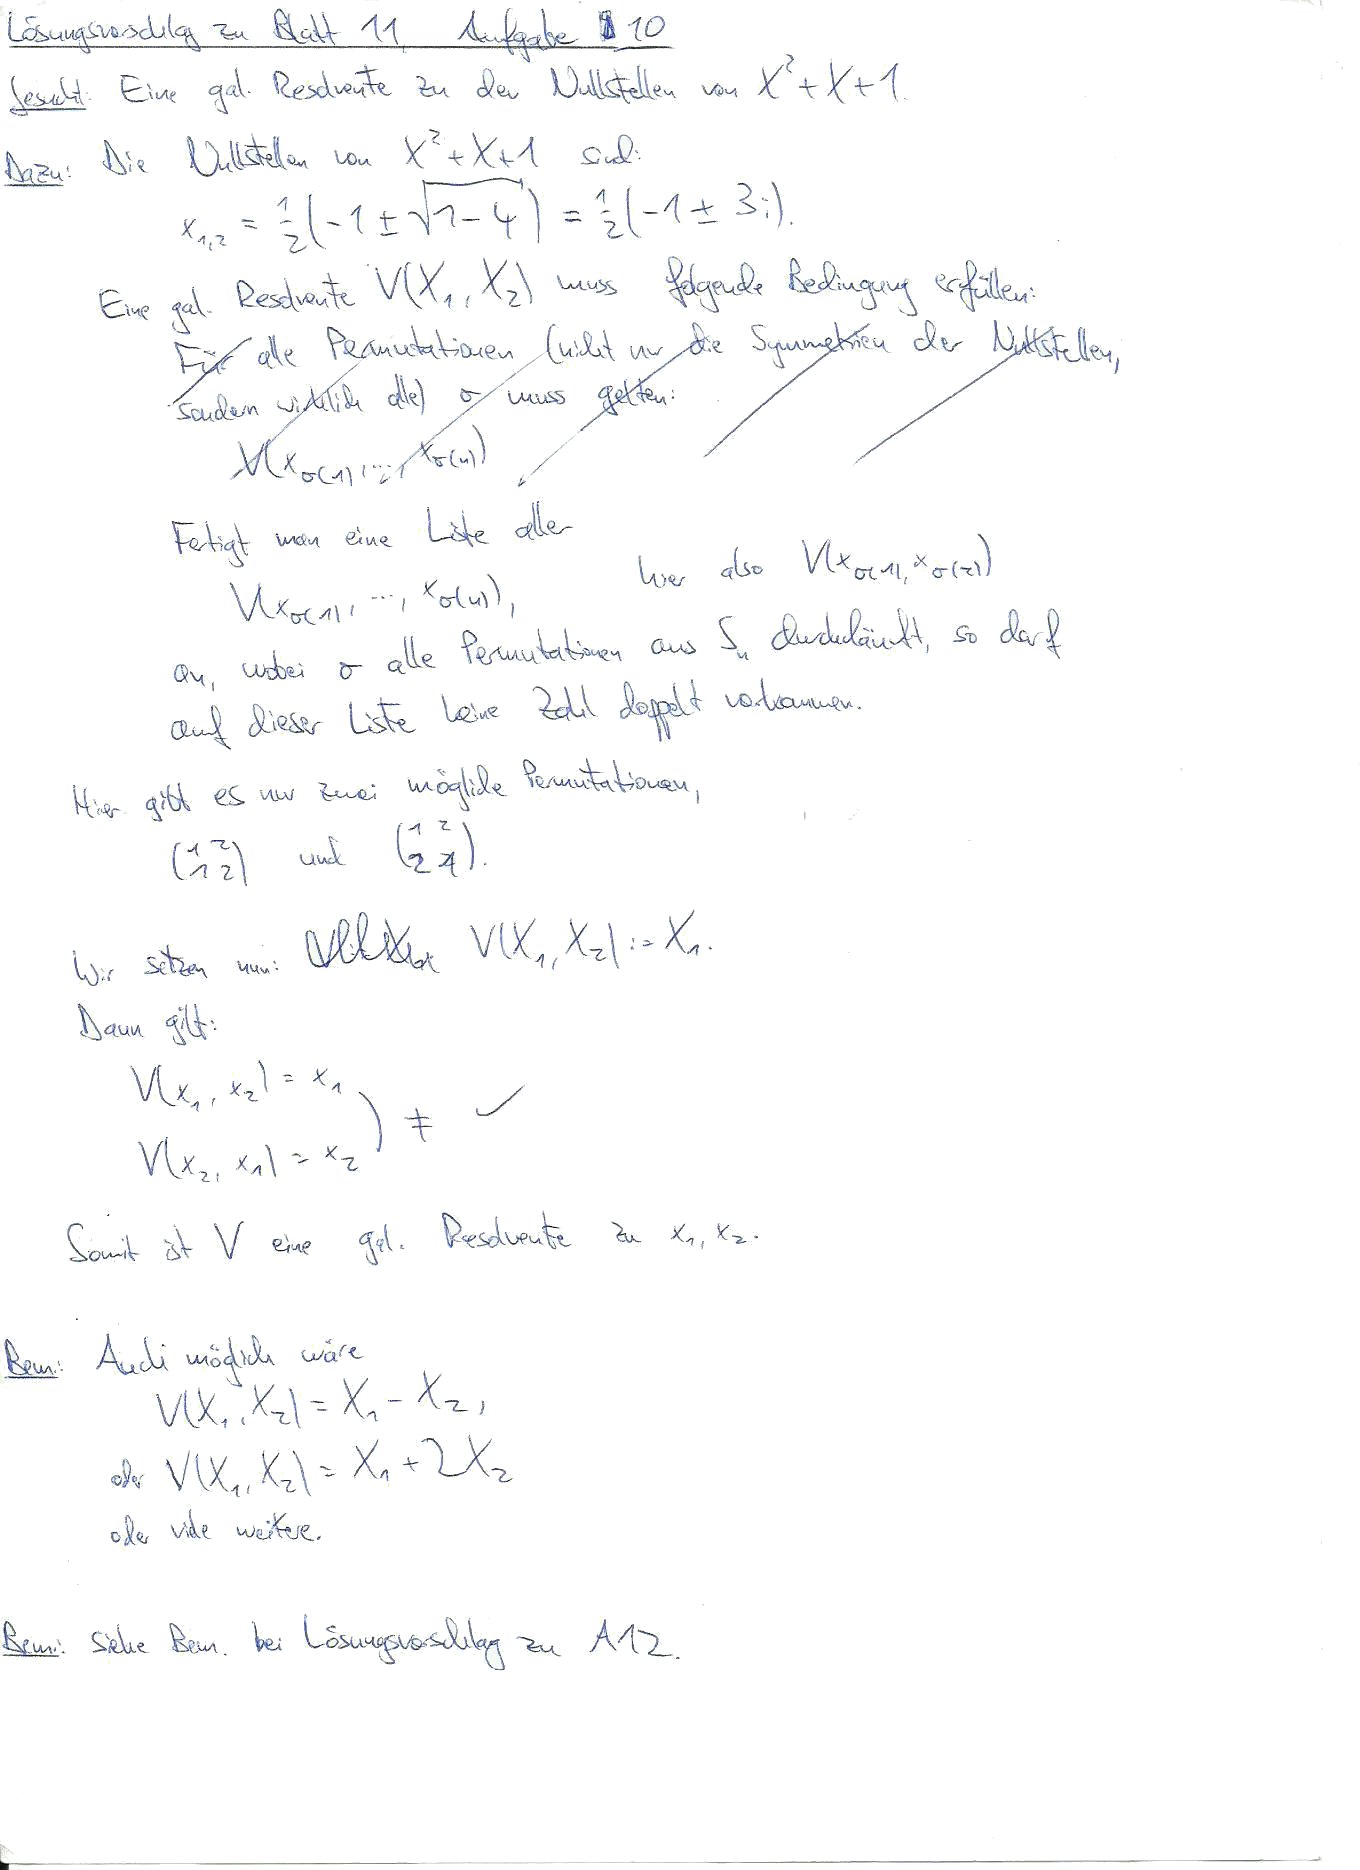 Lösungsvorschlag zu Blatt 11, Aufgabe 10
Gesucht: Eine gal. Resolvente zu den Nullstellen von X² + X + 1.
Dazu: Die Nullstellen von X² + X + 1 sind:
x₁,₂ = 1/2 (-1 ± √(1-4)) = 1/2 (-1 ± 3i).
Eine gal. Resolvente V(X₁, X₂) muss folgende Bedingung erfüllen:
Für alle Permutationen (nicht nur die Symmetrien der Nullstellen,
sondern wirklich alle) σ muss gelten:
V(x_σ(1), ..., x_σ(n))
Fertigt man eine Liste aller
V(x_σ(1), ..., x_σ(n)), hier also V(x_σ(1), x_σ(2))
an, wobei σ alle Permutationen aus Sₙ durchläuft, so darf
auf dieser Liste keine Zahl doppelt vorkommen.
Hier gibt es nur zwei mögliche Permutationen,
(1 2 / 1 2) und (1 2 / 2 1).
Wir setzen nun: V(X₁, X₂) := X₁.
Dann gilt:
V(x₁, x₂) = x₁
) ≠ ✓
V(x₂, x₁) = x₂
Somit ist V eine gal. Resolvente zu x₁, x₂.
Bem.: Auch möglich wäre
V(X₁, X₂) = X₁ - X₂,
oder V(X₁, X₂) = X₁ + 2X₂
oder viele weitere.
Bem.: Siehe Bem. bei Lösungsvorschlag zu A12.